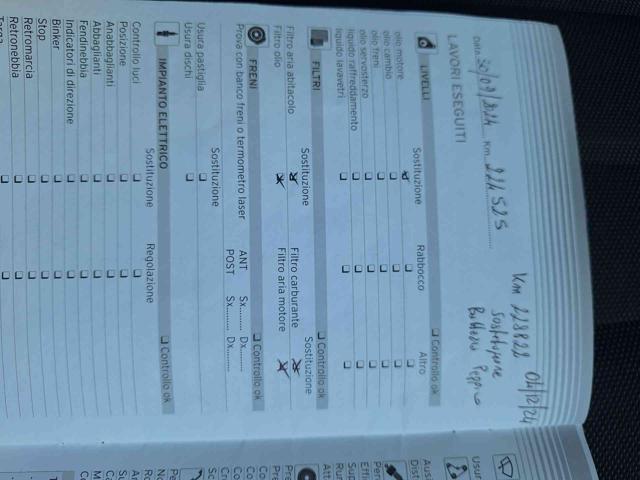 Km 228822 04/12/24
Sostituzione
Batteria Peppino
Data 30/07/2024 Km 224525
LAVORI ESEGUITI
LIVELLI
❑ Controllo ok
Sostituzione Rabbocco Altro
olio motore
olio cambio
olio freni
olio servosterzo
liquido raffreddamento
liquido lavavetri
FILTRI
❑ Controllo ok
Sostituzione Sostituzione
Filtro aria abitacolo Filtro carburante
Filtro olio Filtro aria motore
FRENI
❑ Controllo ok
Prova con banco freni o termometro laser ANT Sx.......... Dx..........
POST Sx.......... Dx..........
Sostituzione
Usura pastiglia
Usura dischi
IMPIANTO ELETTRICO
❑ Controllo ok
Sostituzione Regolazione
Controllo luci
Posizione
Anabbaglianti
Abbaglianti
Fendinebbia
Indicatori di direzione
Binker
Stop
Retromarcia
Retronebbia
Targa